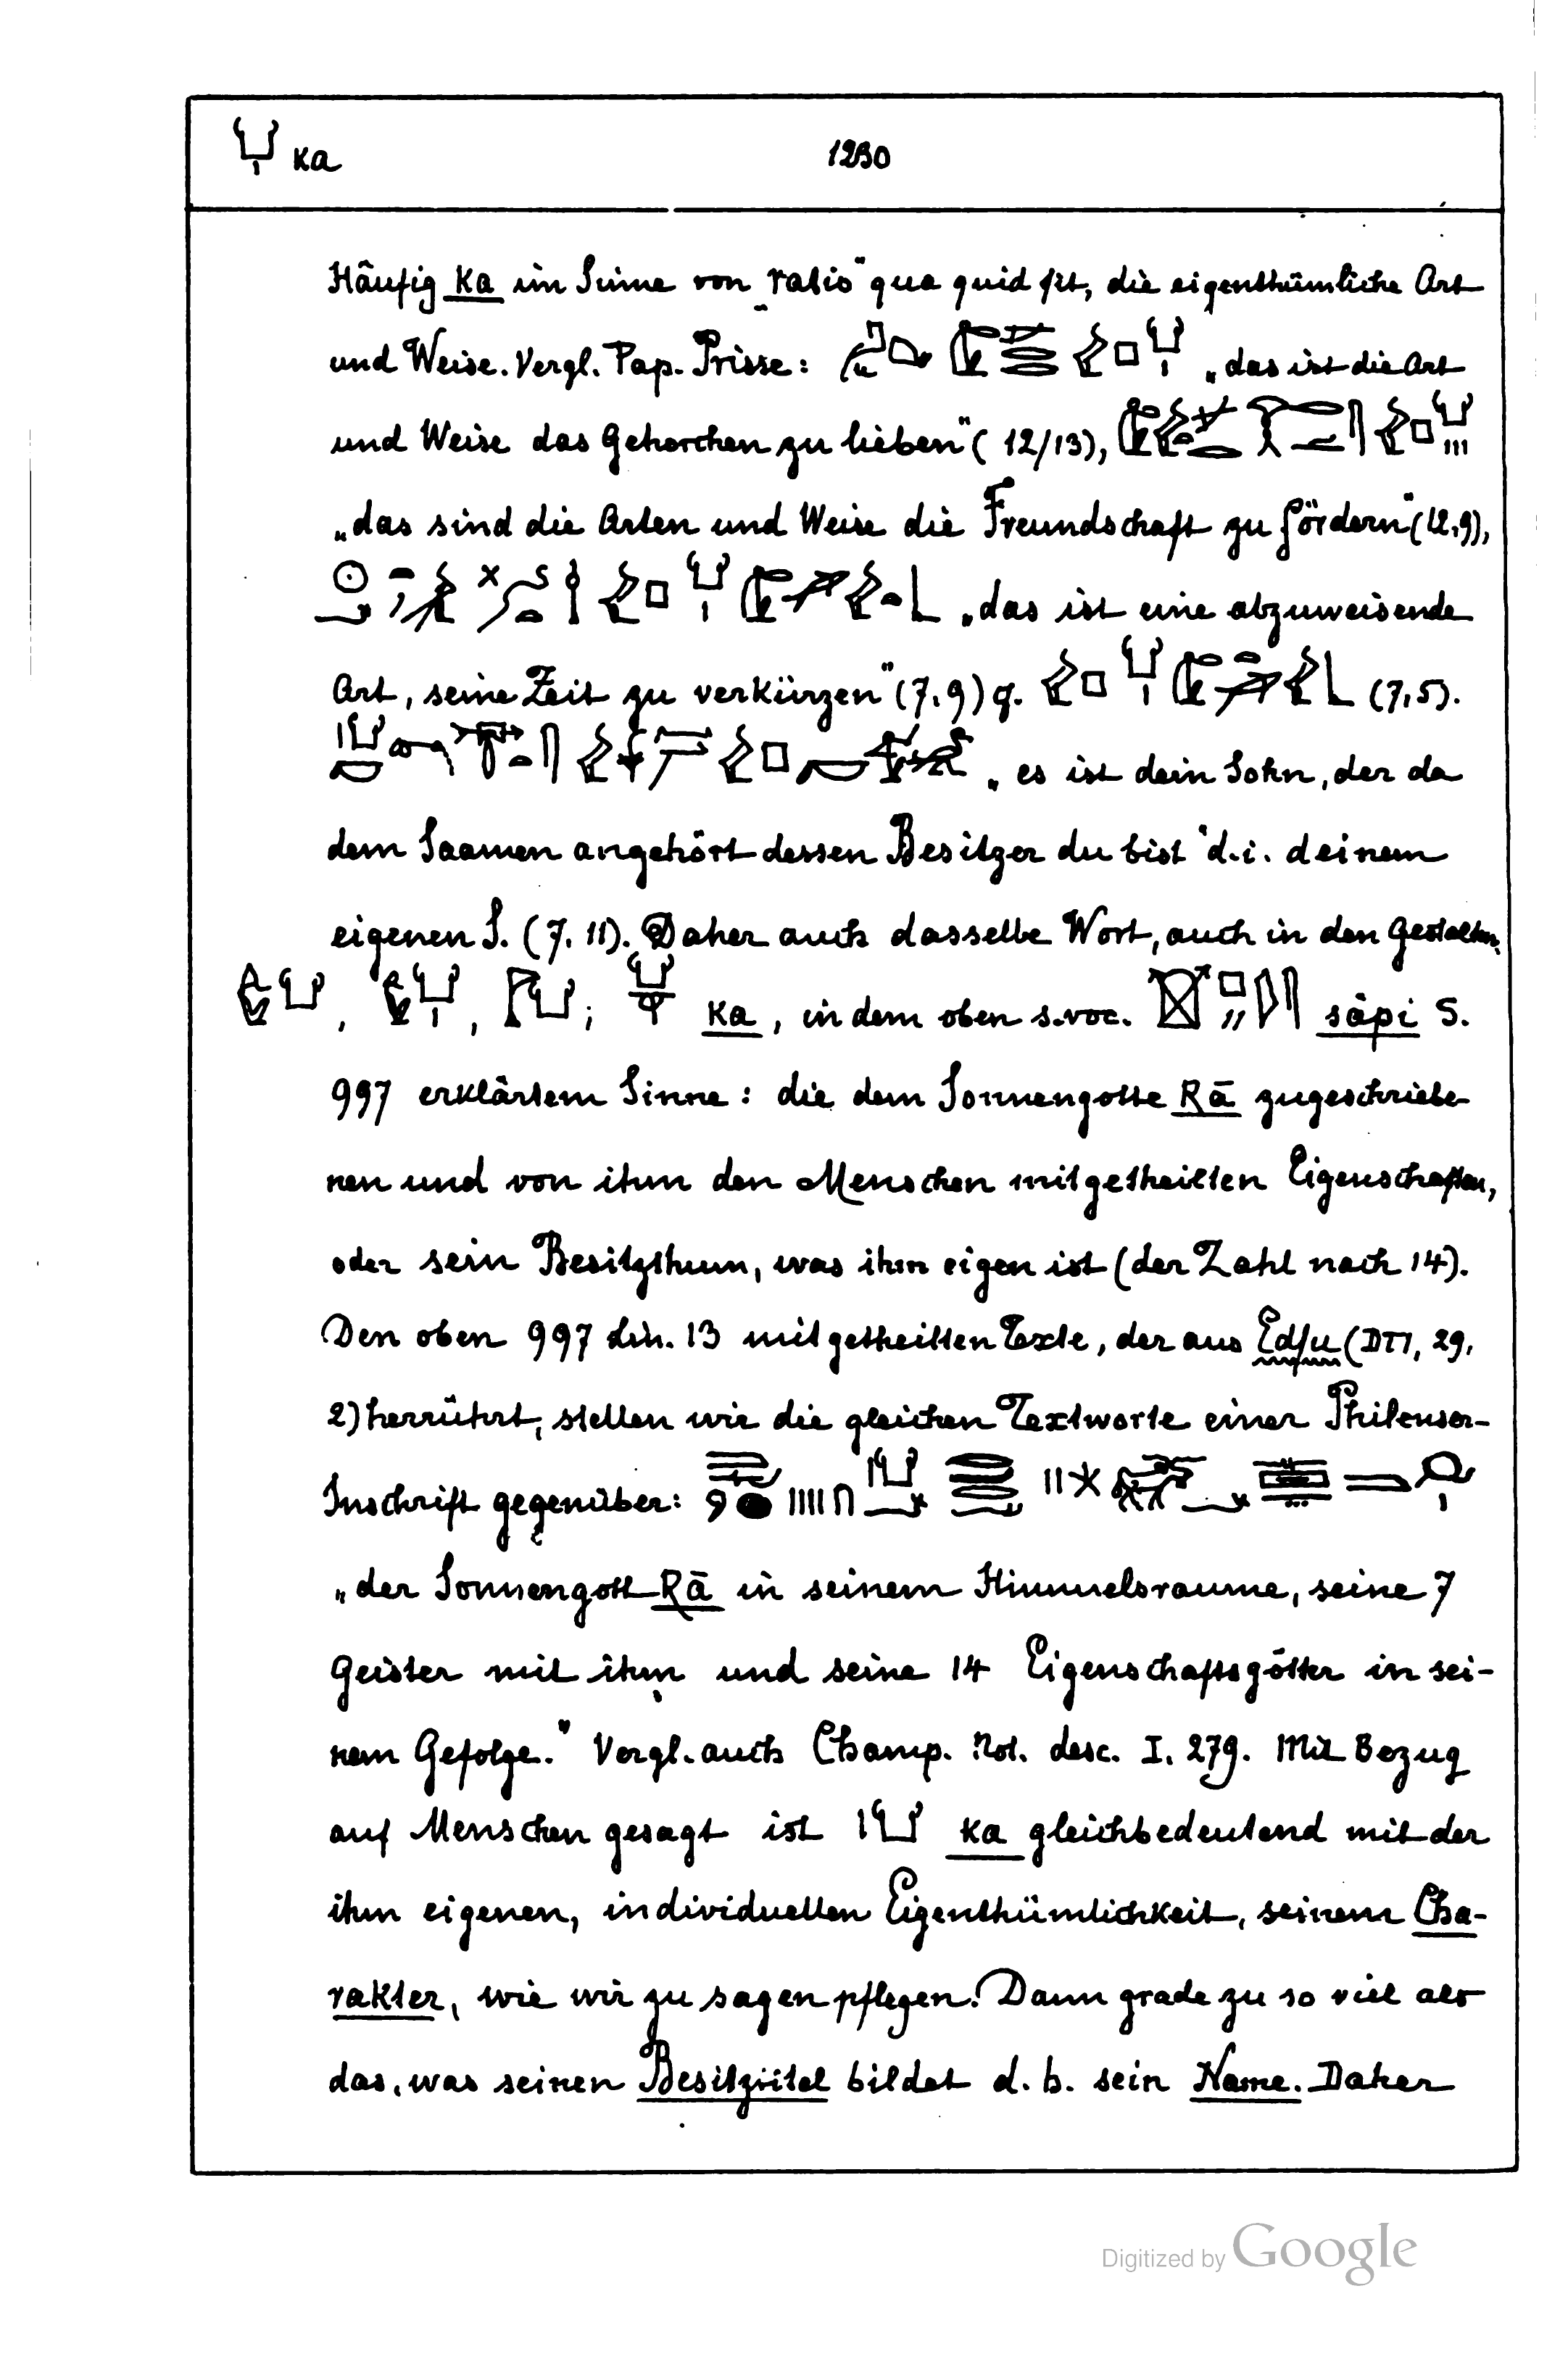 ka 1230
Häufig ka im Sinne von „ratio" qua quid fit, die eigenthümliche Art
und Weise. Vergl. Pap. Prisse: „das ist die Art
und Weise das Gehorchen zu lieben" (12/13),
„das sind die Arten und Weise die Freundschaft zu fördern" (12,9),
„das ist eine abzuweisende
Art, seine Zeit zu verkürzen" (7,9) (7,5).
„es ist dein Sohn, der da
dem Saamen angehört dessen Besitzer du bist" d.i. deinem
eigenen S. (7.11). Daher auch dasselbe Wort, auch in den Gestalten
, , ; ka, in dem oben s. voc. säpi S.
997 erklärtem Sinne: die dem Sonnengotte Rā zugeschriebe-
nen und von ihm den Menschen mitgetheilten Eigenschaften,
oder sein Besitzthum, was ihm eigen ist (der Zahl nach 14).
Den oben 997 lin. 13 mitgetheilten Texte, der aus Edfu (DTI, 29,
2) herrührt, stellen wir die gleichen Textworte einer Philenser-
Inschrift gegenüber:
„der Sonnengott Rā in seinem Himmelsraume, seine 7
Geister mit ihm und seine 14 Eigenschaftsgötter in sei-
nem Gefolge." Vergl. auch Champ. Not. desc. I. 279. Mit Bezug
auf Menschen gesagt ist ka gleichbedeutend mit der
ihm eigenen, individuellen Eigenthümlichkeit, seinem Cha-
rakter, wie wir zu sagen pflegen. Dann grade zu so viel als
das, was seinen Besitztitel bildet d. h. sein Name. Daher
Digitized by Google